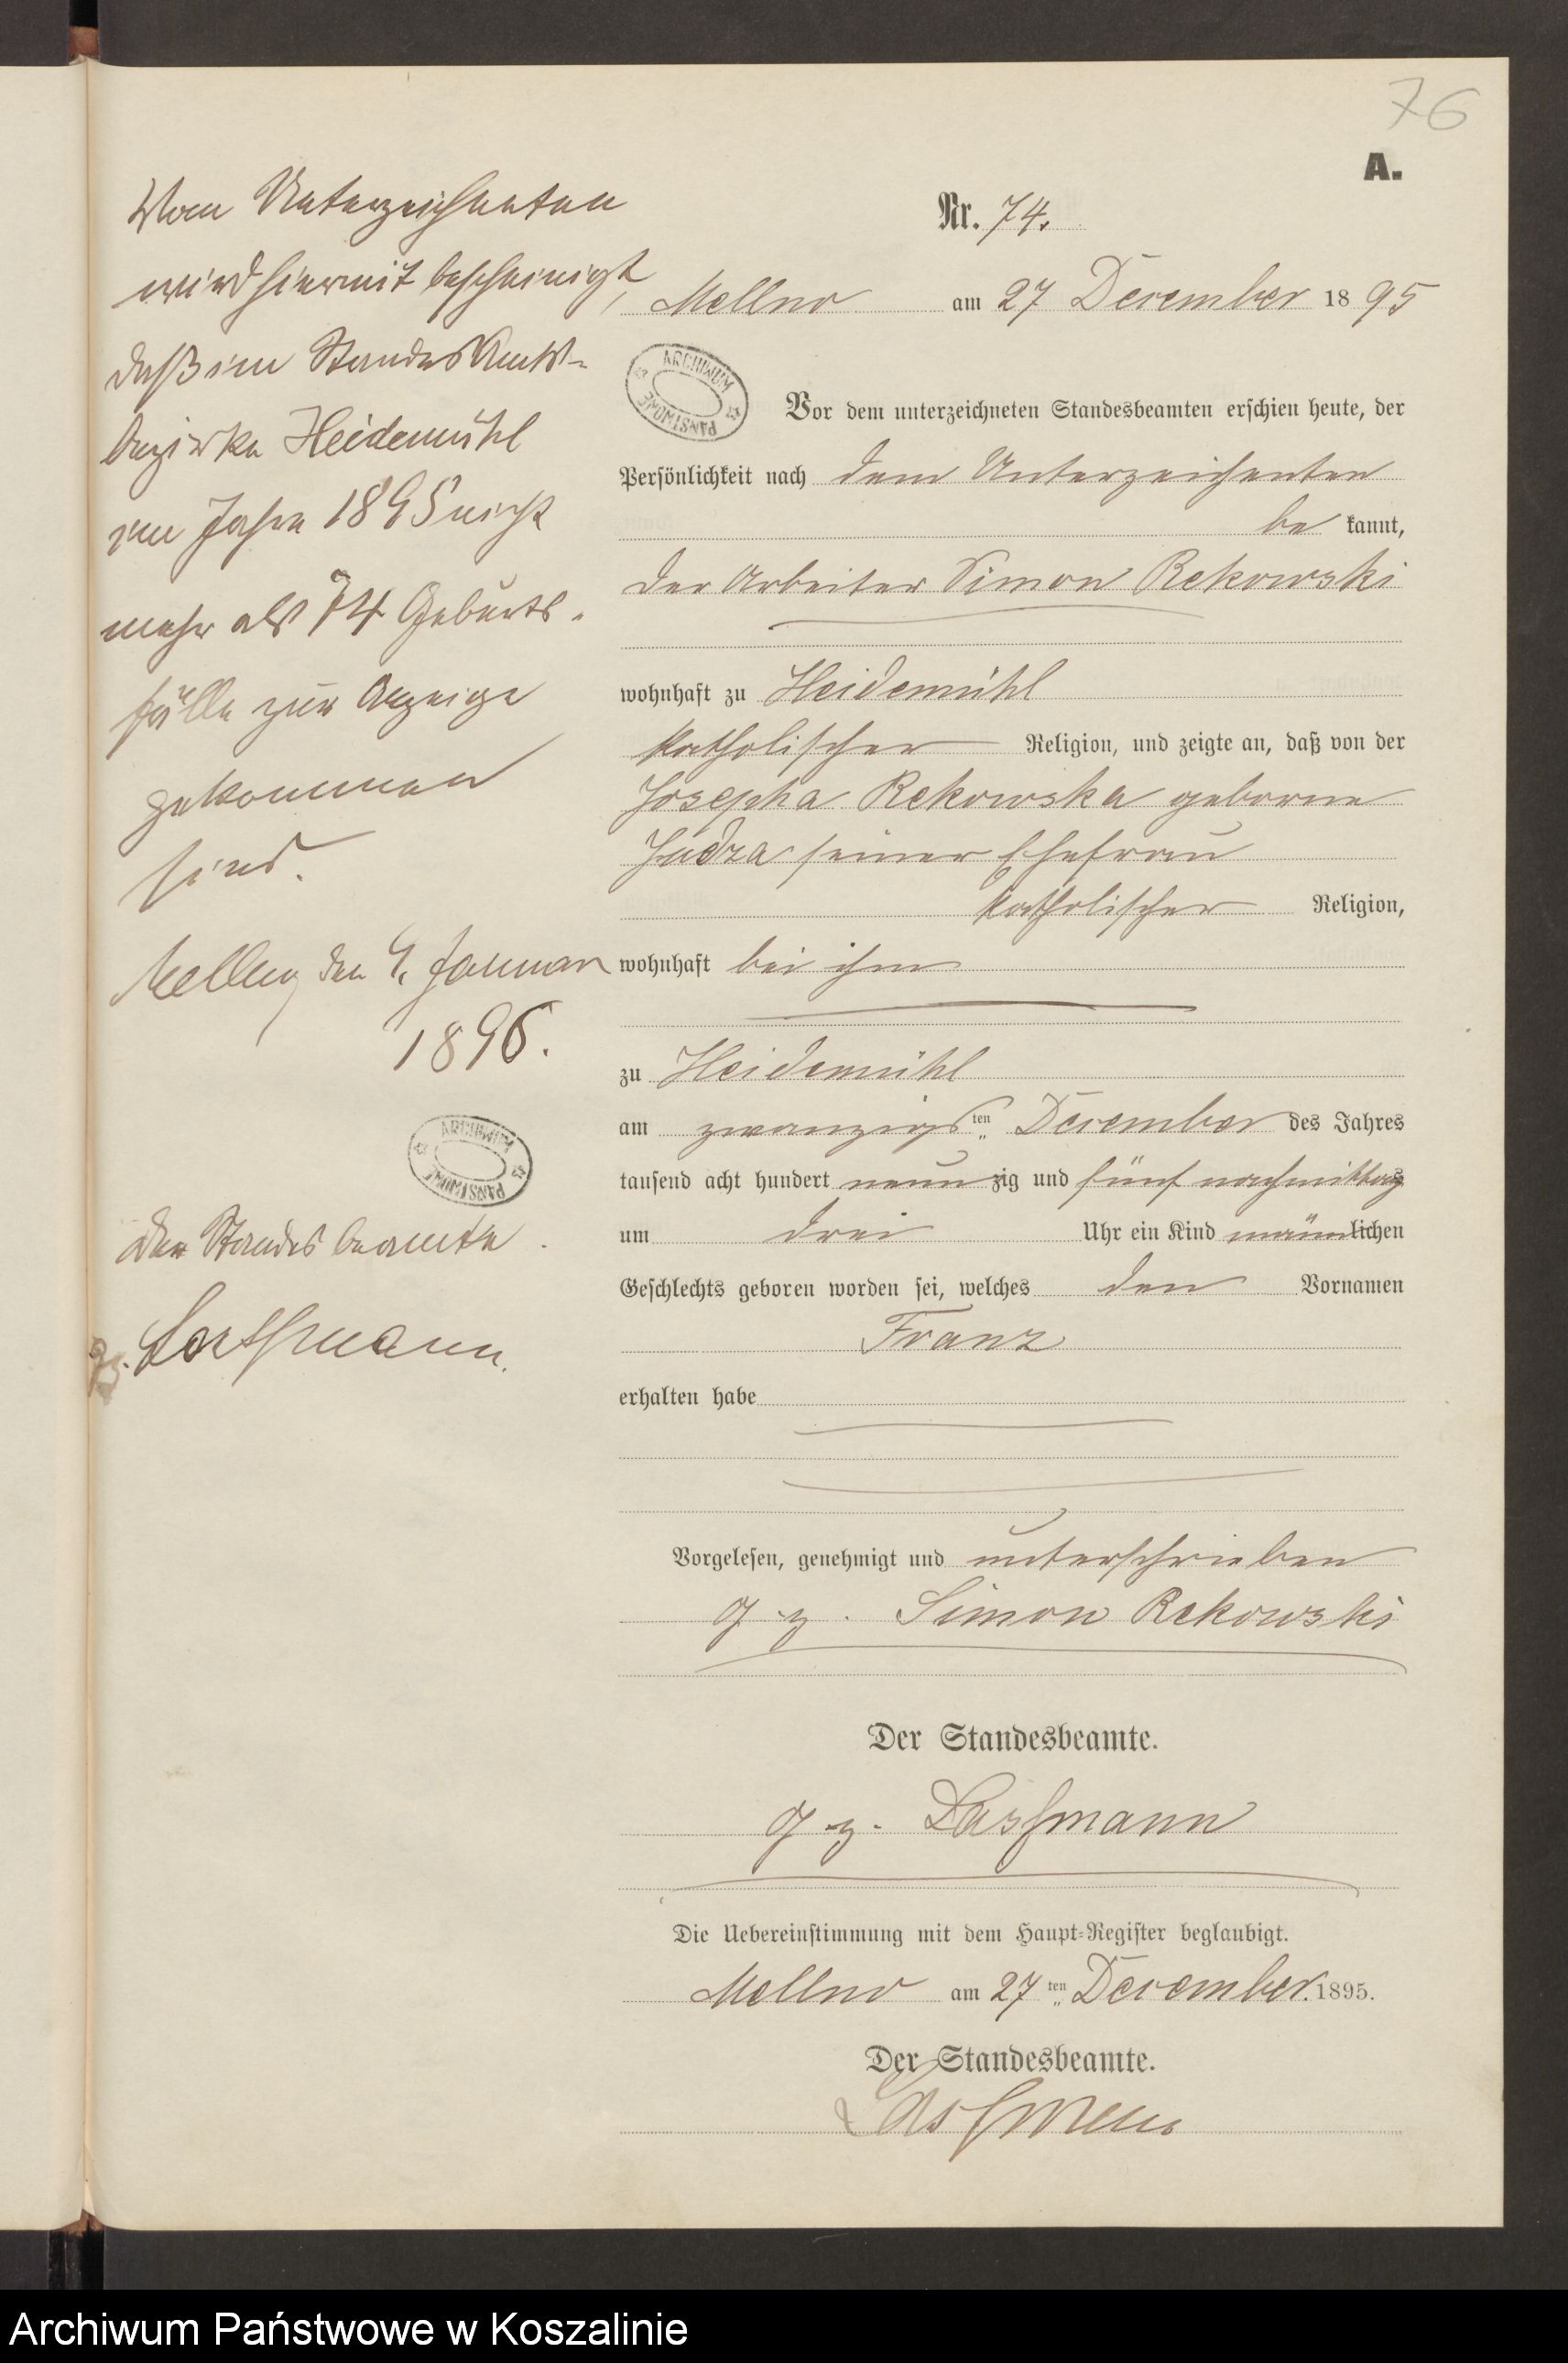 76
A.
Nr. 74.
Mellno am 27 December 1895
ARCHIWUM PAŃSTWOWE
Vor dem unterzeichneten Standesbeamten erschien heute, der
Persönlichkeit nach dem Unterzeichneten
be kannt,
der Arbeiter Simon Rekowski
wohnhaft zu Heidemühl
katholischer Religion, und zeigte an, daß von der
Josepha Rekowska geborne
Judza seiner Ehefrau
katholischer Religion,
wohnhaft bei ihm
zu Heidemühl
am zwanzigsten December des Jahres
tausend acht hundert neunzig und fünf nachmittags
um drei Uhr ein Kind männlichen
Geschlechts geboren worden sei, welches den Vornamen
Franz
erhalten habe
Vorgelesen, genehmigt und unterschrieben
gz. Simon Rekowski
Der Standesbeamte.
gz.
Die Uebereinstimmung mit dem Haupt-Register beglaubigt.
Mellno am 27ten December 1895.
Der Standesbeamte.
Vom Unterzeichneten
wird hiermit bescheinigt,
daß im Standes Amts-
bezirke Heidemühl
im Jahre 1895 nicht
mehr als 74 Geburts-
fälle zur Anzeige
gekommen
sind.
den 4. Januar
1896.
ARCHIWUM PAŃSTWOWE
Der Standesbeamte.
gz.
Archiwum Państwowe w Koszalinie